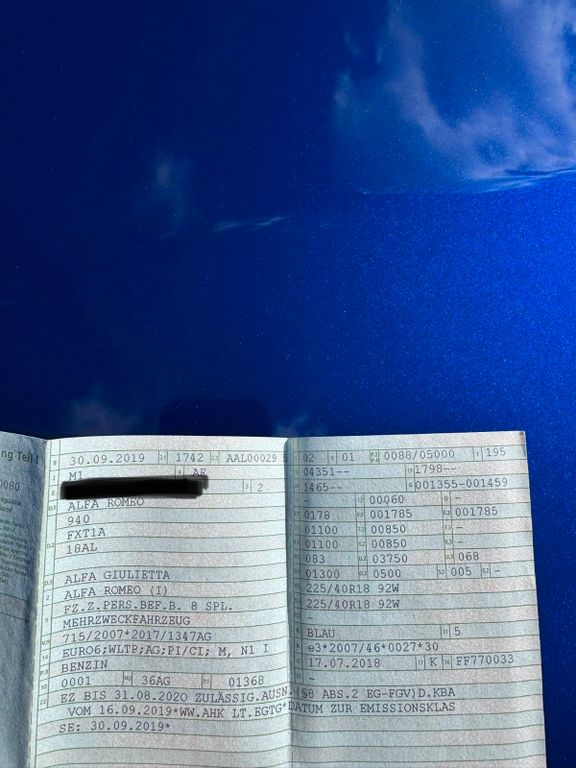 ng Teil I
0080
B 30.09.2019 2.1 1742 2.2 AAL00029 5
J M1 4 AF
3 2
D.1 ALFA ROMEO
940
FXT1A
18AL
D.3 ALFA GIULIETTA
2 ALFA ROMEO (I)
5 FZ.Z.PERS.BEF.B. 8 SPL.
MEHRZWECKFAHRZEUG
715/2007*2017/1347AG
14 EURO6;WLTP;AG;PI/CI; M, N1 I
BENZIN
0001 36AG 01368
22 EZ BIS 31.08.2020 ZULÄSSIG.AUSN.(§8 ABS.2 EG-FGV)D.KBA
VOM 16.09.2019*WW.AHK LT.EGTG*DATUM ZUR EMISSIONSKLAS
SE: 30.09.2019*
02 9 01 P.2 P.4 0088/05000 T 195
04351-- 19 1798--
1465-- G 001355-001459
00060 -
0178 001785 001785
01100 00850 -
01100 00850 -
083 03750 068
01300 0500 005 -
225/40R18 92W
225/40R18 92W
-
R BLAU 11 5
K e3*2007/46*0027*30
6 17.07.2018 17 K 16 FF770033
-